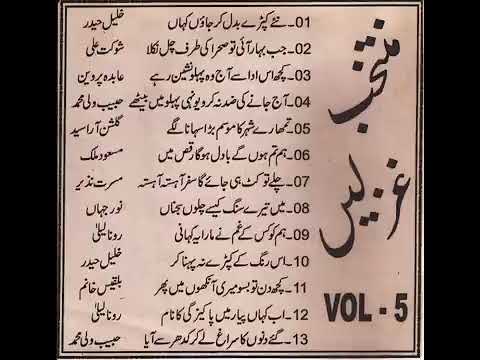 منتخب غزلیں
VOL - 5
01۔ نئے کپڑے بدل کر جاؤں کہاں خلیل حیدر
02۔ جب بہار آئی تو صحرا کی طرف چل نکلا شوکت علی
03۔ کچھ اس ادا سے آج وہ پہلو نشین رہے عابدہ پروین
04۔ آج جانے کی ضد نہ کرو یونہی پہلو میں بیٹھے حبیب ولی محمد
05۔ تمھارے شہر کا موسم بڑا سہانا لگے گلشن آرا سید
06۔ ہم تم ہوں گے بادل ہوگا رقص میں مسعود ملک
07۔ چلے تو کٹ ہی جائے گا سفر آہستہ آہستہ مسرت نذیر
08۔ میں تیرے سنگ کیسے چلوں سجناں نور جہاں
09۔ ہم کو کس کے غم نے مارا یہ کہانی رونا لیلیٰ
10۔ اس رنگ کے کپڑے نہ پہنا کر خلیل حیدر
11۔ کچھ دن تو بسو میری آنکھوں میں پھر بلقیس خانم
12۔ اب کہاں پیار میں پاکیزگی کا نام رونا لیلیٰ
13۔ گئے دنوں کا سراغ لے کر کدھر سے آیا حبیب ولی محمد